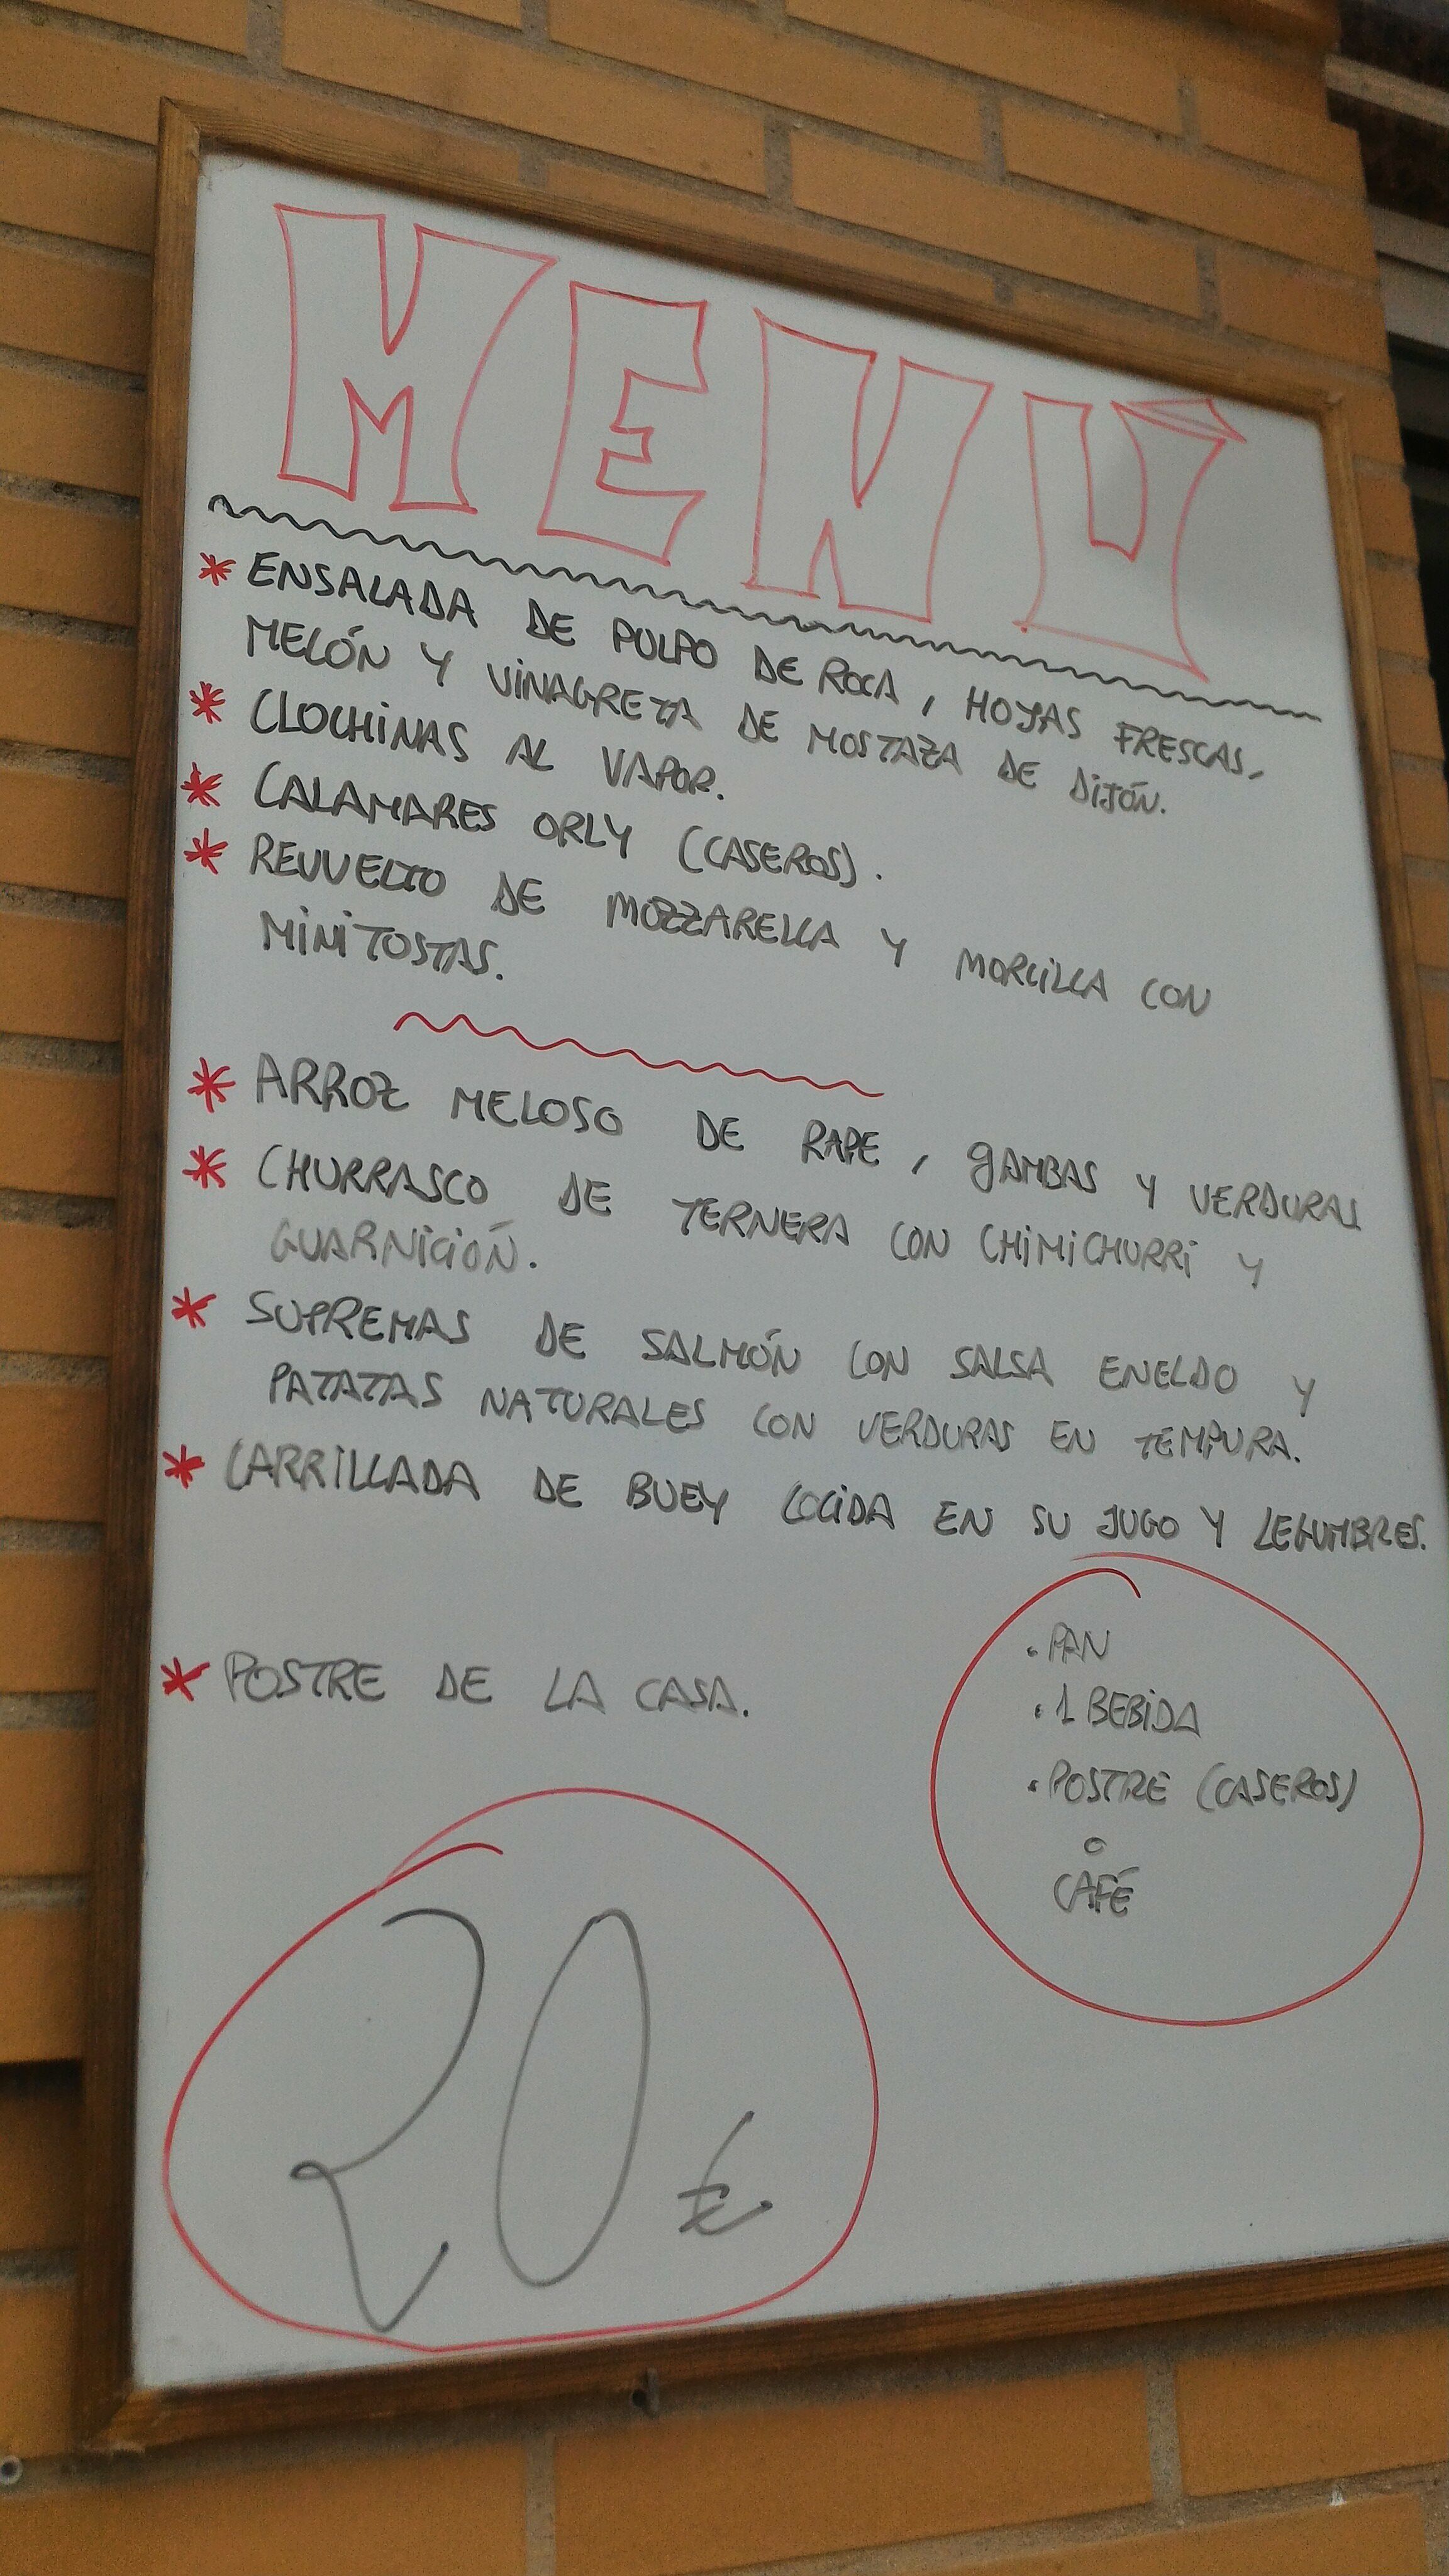 MENÚ
* ENSALADA DE PULPO DE ROCA, HOJAS FRESCAS,
MELÓN Y VINAGRETA DE MOSTAZA DE DIJÓN.
* CLOCHINAS AL VAPOR.
* CALAMARES ORLY (CASEROS).
* REVUELTO DE MOZZARELLA Y MORCILLA CON
MINITOSTAS.
* ARROZ MELOSO DE RAPE, GAMBAS Y VERDURAS
* CHURRASCO DE TERNERA CON CHIMICHURRI Y
GUARNICIÓN.
* SUPREMAS DE SALMÓN CON SALSA ENELDO Y
PATATAS NATURALES CON VERDURAS EN TEMPURA.
* CARRILLADA DE BUEY COCIDA EN SU JUGO Y LEGUMBRES.
* POSTRE DE LA CASA.
· PAN
· 1 BEBIDA
· POSTRE (CASEROS)
O
CAFÉ
20 €